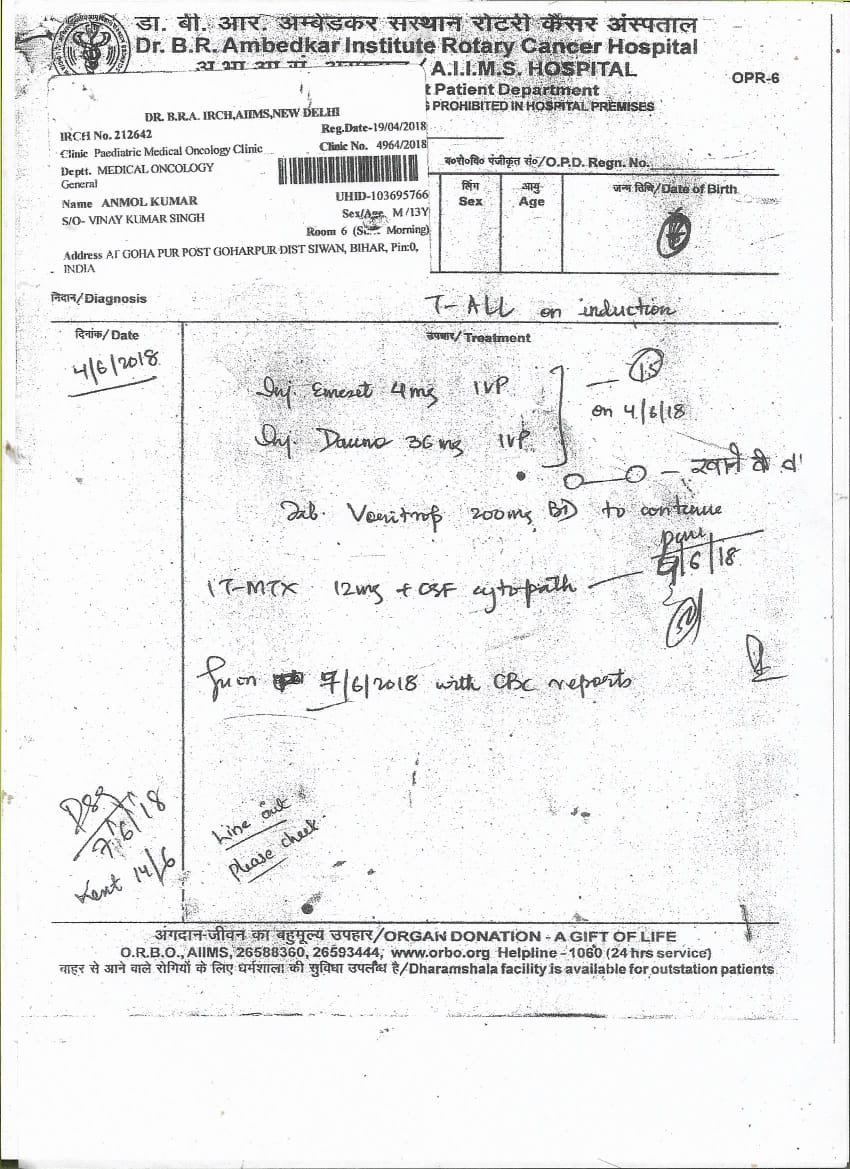 डा. बी. आर. अम्बेडकर संस्थान रोटरी कैंसर अस्पताल
Dr. B.R. Ambedkar Institute Rotary Cancer Hospital
/ A.I.I.M.S. HOSPITAL
OPR-6
t Patient Department
PROHIBITED IN HOSPITAL PREMISES
DR. B.R.A. IRCH,AIIMS,NEW DELHI
IRCH No. 212642
Reg.Date-19/04/2018
Clinic Paediatric Medical Oncology Clinic
Clinic No. 4964/2018
Deptt. MEDICAL ONCOLOGY
General
Name ANMOL KUMAR
UHID-103695766
S/O- VINAY KUMAR SINGH
Sex/Age M /13Y
Room 6 ( Morning)
Address AT GOHA PUR POST GOHARPUR DIST SIWAN, BIHAR, Pin:0,
INDIA
ब०रो०वि० पंजीकृत सं०/O.P.D. Regn. No.
लिंग
Sex
आयु
Age
जन्म तिथि/Date of Birth
निदान/Diagnosis
T-ALL on induction
दिनांक/Date
उपचार/Treatment
4/6/2018
Inj. Emeset 4mg IVP
15
on 4/6/18
Inj. Dauno 36mg IVP
खाने के
Tab. 200mg BD to continue
IT-MTX 12mg + CSF cytopath
/6/18
on 7/6/2018 with CBC reports
7/6/18
14/6
Line out
Please check
अंगदान-जीवन का बहुमूल्य उपहार/ORGAN DONATION - A GIFT OF LIFE
O.R.B.O., AIIMS, 26588360, 26593444, www.orbo.org Helpline - 1060 (24 hrs service)
बाहर से आने वाले रोगियों के लिए धर्मशाला की सुविधा उपलब्ध है/Dharamshala facility is available for outstation patients